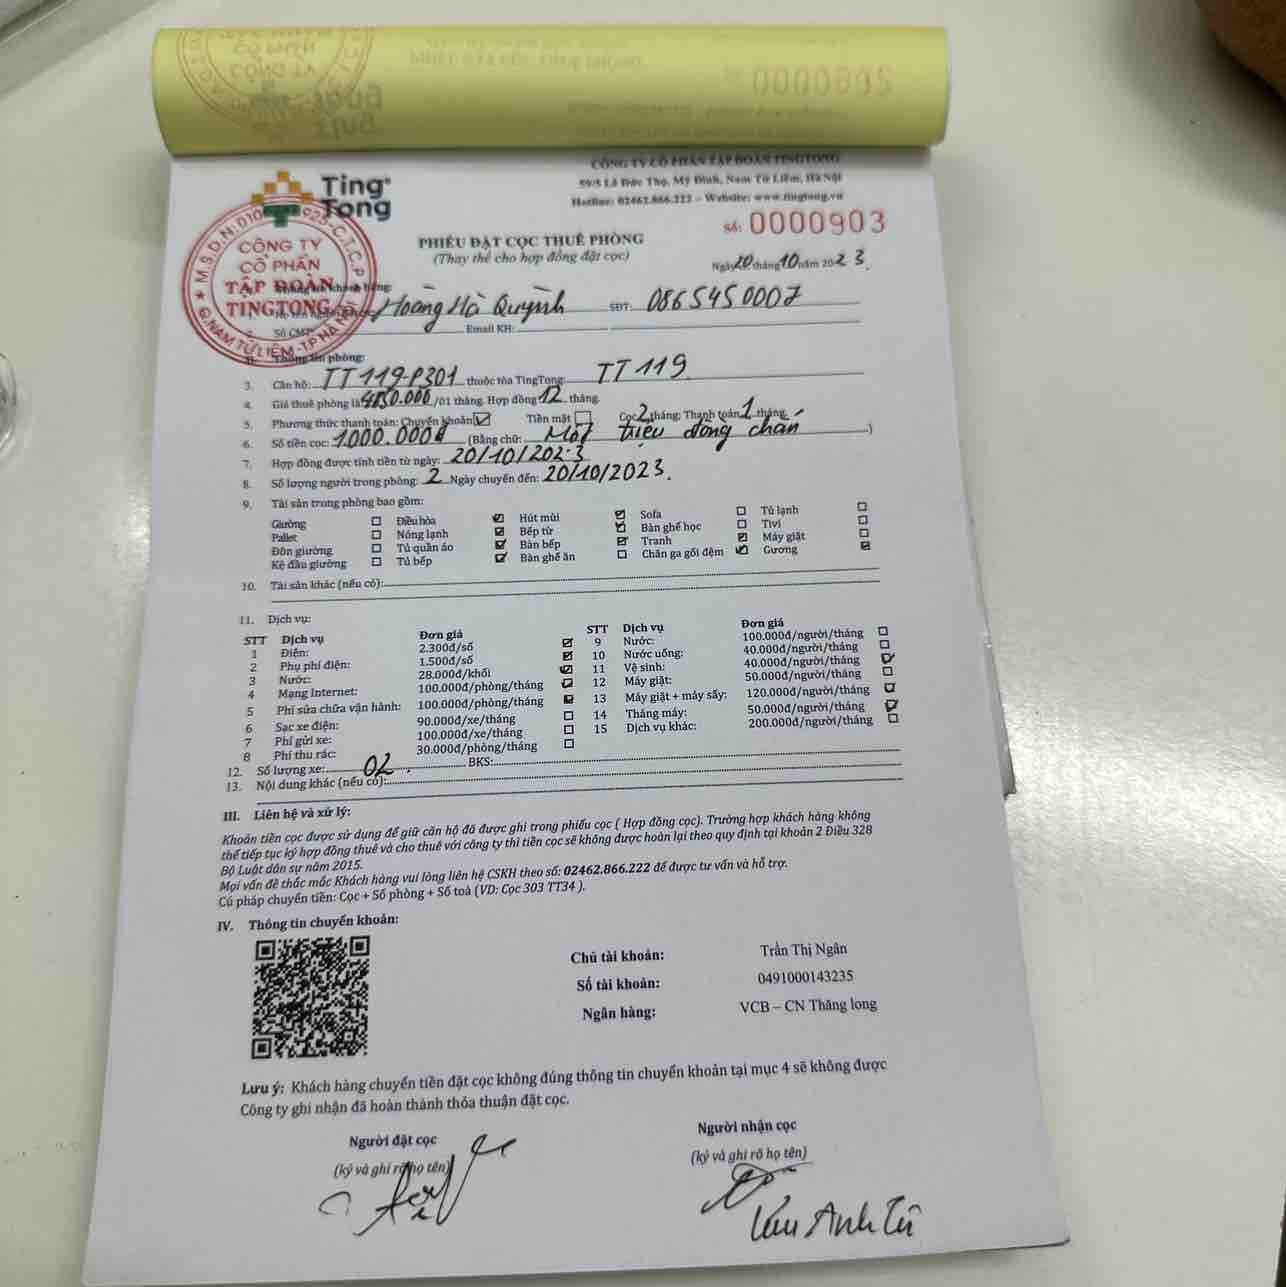 0000895
CÔNG TY CỔ PHẦN TẬP ĐOÀN TINGTONG
59/5 Lê Đức Thọ, Mỹ Đình, Nam Từ Liêm, Hà Nội
Hotline: 02462.866.222 – Website: www.tingtong.vn
Ting Tong
Số: 0000903
PHIẾU ĐẶT CỌC THUÊ PHÒNG
(Thay thế cho hợp đồng đặt cọc)
Ngày 20 tháng 10 năm 2023.
CÔNG TY
CỔ PHẦN
TẬP ĐOÀN
TINGTONG
Q.NAM TỪ LIÊM-TP.HÀ NỘI
Hoàng Hà Quỳnh SĐT: 0865450007
Số CMT: Email KH:
II. Thông tin phòng:
3. Căn hộ: TT119-P301 thuộc tòa TingTong: TT 119
4. Giá thuê phòng là 4850.000/01 tháng. Hợp đồng 12 tháng.
5. Phương thức thanh toán: Chuyển khoản Tiền mặt Cọc 2 tháng; Thanh toán 1 tháng
6. Số tiền cọc: 1.000.000đ (Bằng chữ: Một triệu đồng chẵn )
7. Hợp đồng được tính tiền từ ngày: 20/10/2023
8. Số lượng người trong phòng: 2 Ngày chuyển đến: 20/10/2023.
9. Tài sản trong phòng bao gồm:
Giường Điều hòa Hút mùi Sofa Tủ lạnh
Pallet Nóng lạnh Bếp từ Bàn ghế học Tivi
Đôn giường Tủ quần áo Bàn bếp Tranh Máy giặt
Kệ đầu giường Tủ bếp Bàn ghế ăn Chăn ga gối đệm Gương
10. Tài sản khác (nếu có):
11. Dịch vụ:
STT Dịch vụ Đơn giá STT Dịch vụ Đơn giá
1 Điện: 2.300đ/số 9 Nước: 100.000đ/người/tháng
2 Phụ phí điện: 1.500đ/số 10 Nước uống: 40.000đ/người/tháng
3 Nước: 28.000đ/khối 11 Vệ sinh: 40.000đ/người/tháng
4 Mạng Internet: 100.000đ/phòng/tháng 12 Máy giặt: 50.000đ/người/tháng
5 Phí sửa chữa vận hành: 100.000đ/phòng/tháng 13 Máy giặt + máy sấy: 120.000đ/người/tháng
6 Sạc xe điện: 90.000đ/xe/tháng 14 Tháng máy: 50.000đ/người/tháng
7 Phí gửi xe: 100.000đ/xe/tháng 15 Dịch vụ khác: 200.000đ/người/tháng
8 Phí thu rác: 30.000đ/phòng/tháng
12. Số lượng xe: 02. BKS:
13. Nội dung khác (nếu có):
III. Liên hệ và xử lý:
Khoản tiền cọc được sử dụng để giữ căn hộ đã được ghi trong phiếu cọc ( Hợp đồng cọc). Trường hợp khách hàng không
thể tiếp tục ký hợp đồng thuê và cho thuê với công ty thì tiền cọc sẽ không được hoàn lại theo quy định tại khoản 2 Điều 328
Bộ Luật dân sự năm 2015.
Mọi vấn đề thắc mắc Khách hàng vui lòng liên hệ CSKH theo số: 02462.866.222 để được tư vấn và hỗ trợ.
Cú pháp chuyển tiền: Cọc + Số phòng + Số toà (VD: Cọc 303 TT34 ).
IV. Thông tin chuyển khoản:
Chủ tài khoản: Trần Thị Ngân
Số tài khoản: 0491000143235
Ngân hàng: VCB – CN Thăng long
Lưu ý: Khách hàng chuyển tiền đặt cọc không đúng thông tin chuyển khoản tại mục 4 sẽ không được
Công ty ghi nhận đã hoàn thành thỏa thuận đặt cọc.
Người đặt cọc Người nhận cọc
(ký và ghi rõ họ tên) (ký và ghi rõ họ tên)
Anh Tú